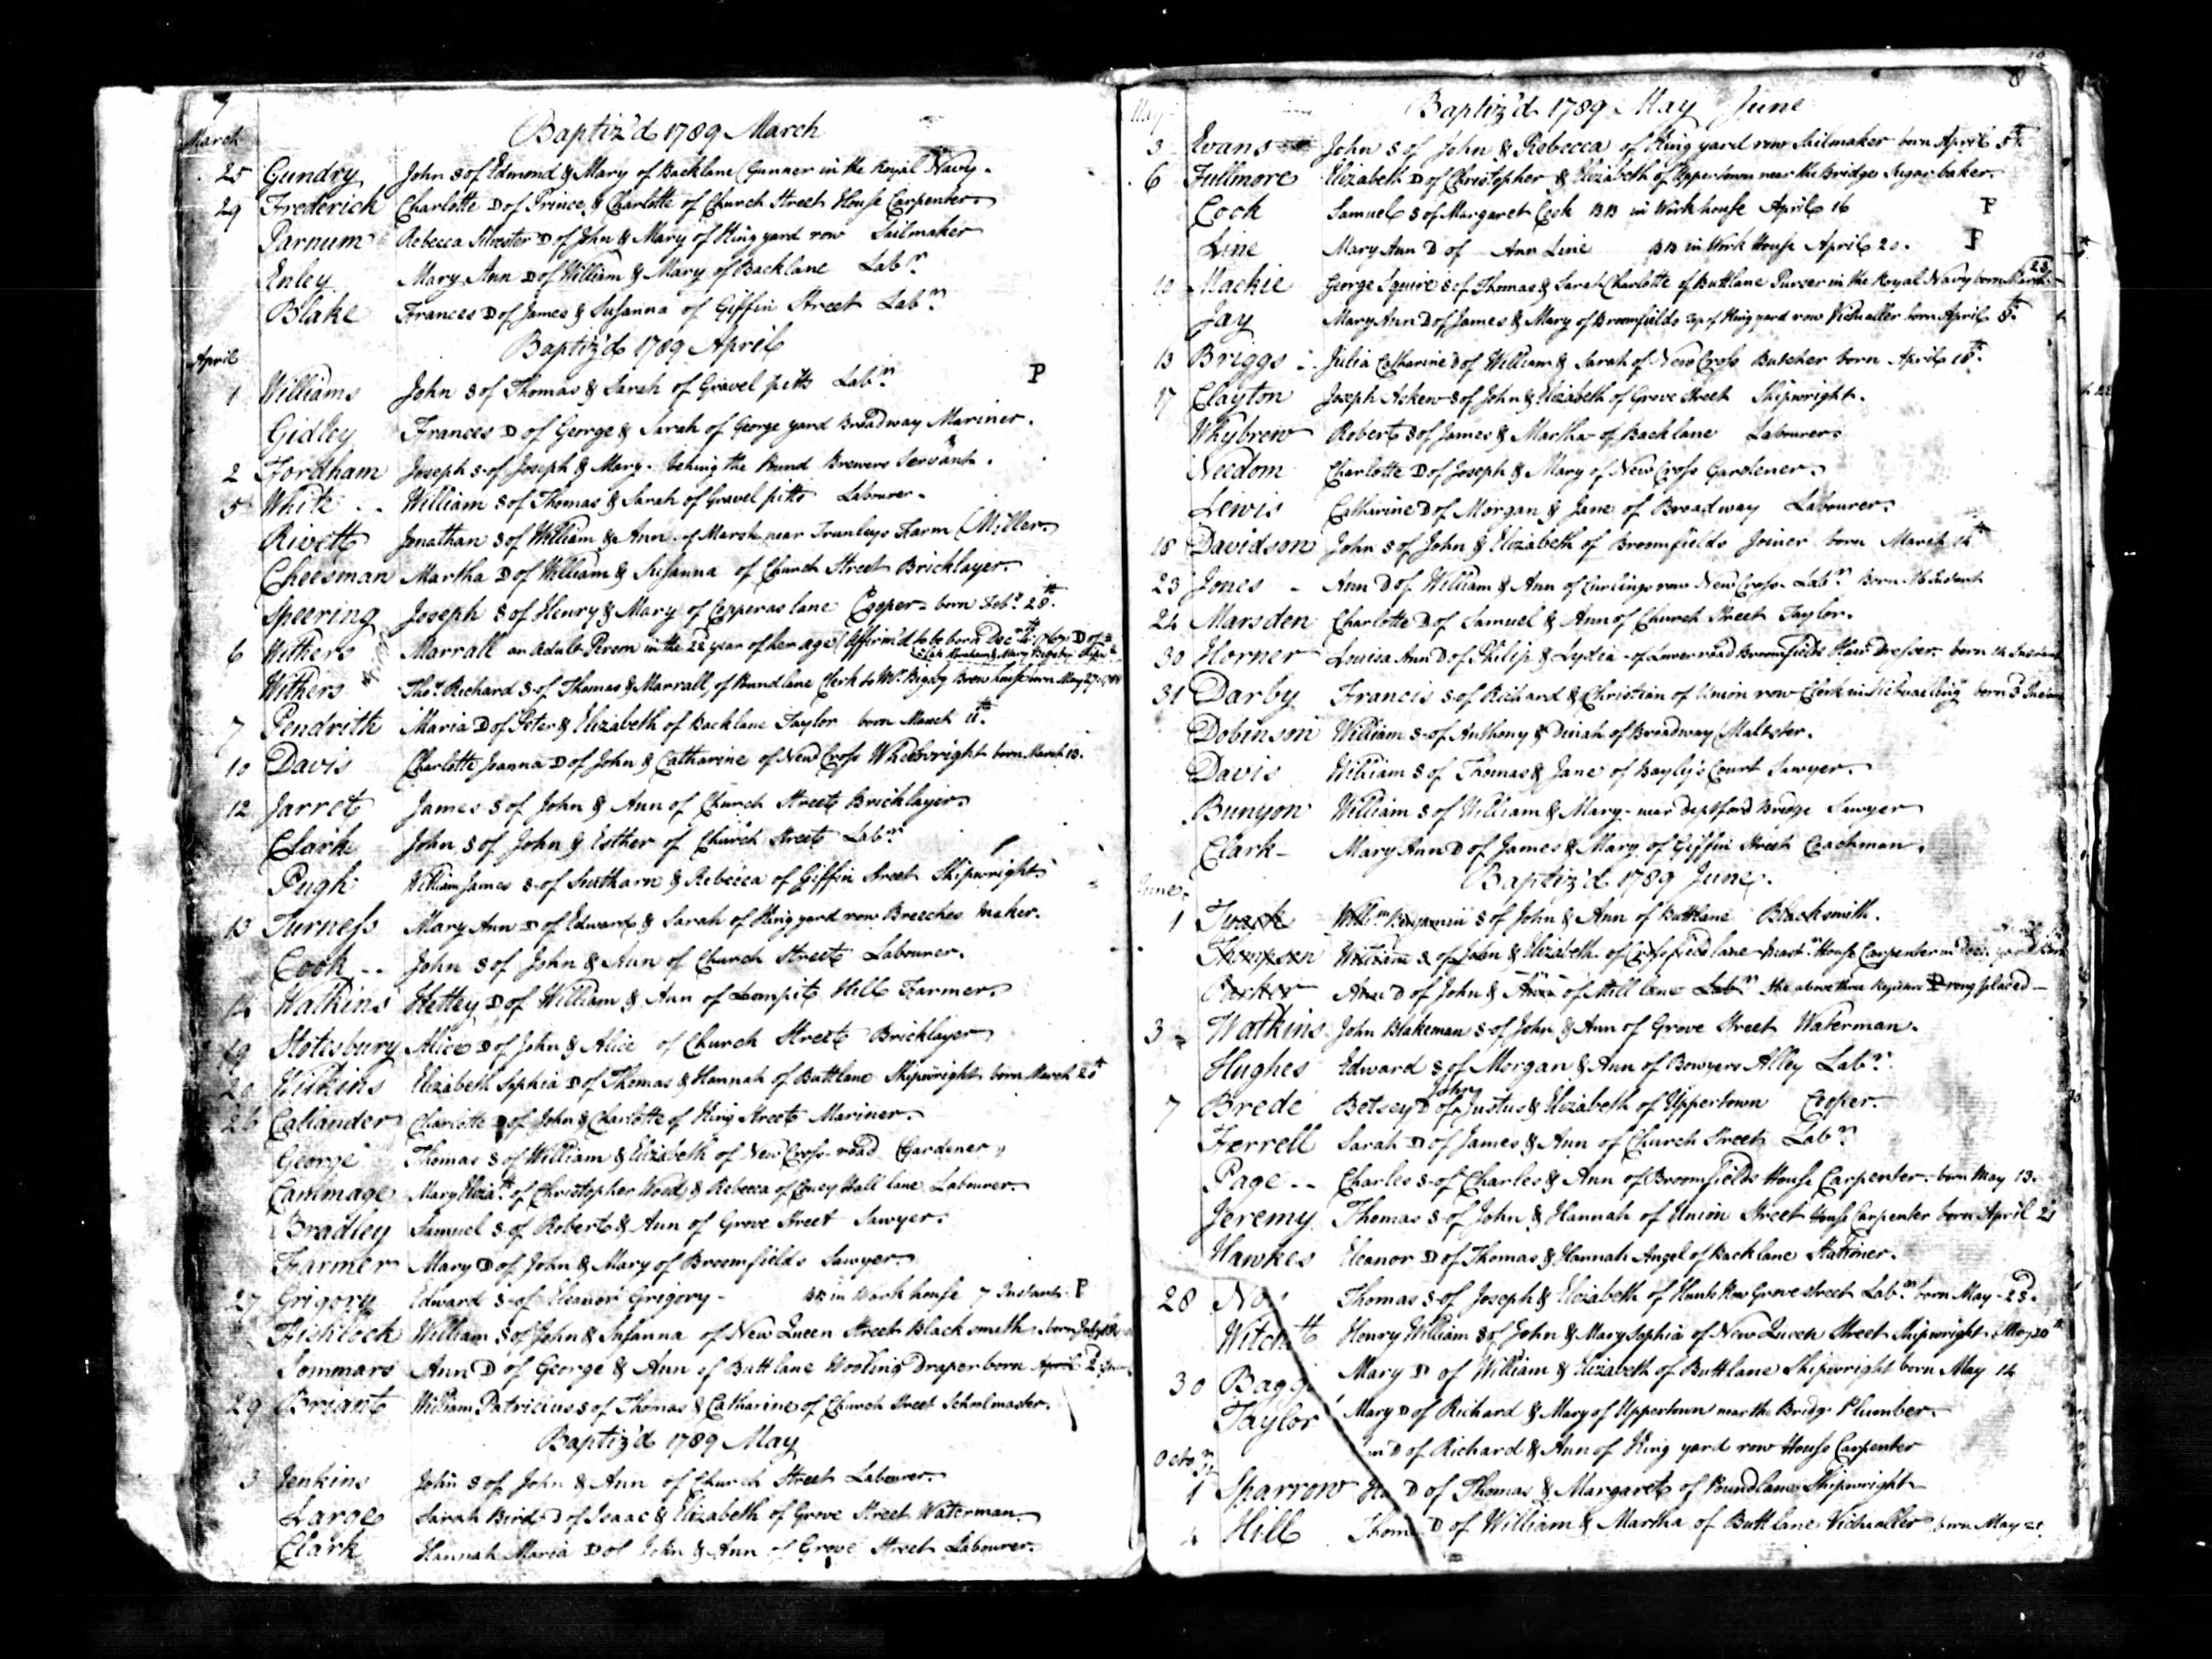 7
March
Baptiz'd 1789 March
25 Gundry John S of Edmond & Mary of Backlane Gunner in the Royal Navy.
29 Frederick Charlotte D of Prince & Charlotte of Church Street House Carpenter
Parnum Rebecca Silvester D of John & Mary of King yard row Sailmaker
Enley Mary Ann D of William & Mary of Backlane Labr
Blake Frances D of James & Susanna of Giffin Street Labr
Baptiz'd 1789 April
April
1 Williams John S of Thomas & Sarah of Gravel pitts Labr P
Gidley Frances D of George & Sarah of George yard Broadway Mariner.
2 Fordham Joseph S of Joseph & Mary. behing the Pund Brewers Servant.
5 White William S of Thomas & Sarah of Gravel pitts Labourer
Rivett Jonathan S of William & Ann of Marsh near Trunleys Farm Miller
Cheesman Martha D of William & Susanna of Church Street Bricklayer.
Speering Joseph S of Henry & Mary of Copperas lane Cooper born Feby 28th.
6 Withers Marrall an Adult Person in the 22 year of her age Affirm'd to be born Decr 1767 D of
Capt Abraham & Mary Bigsby
Withers Thos Richard S of Thomas & Marrall of Pundlane Clerk to Mr Bigsby Brewhouse born May 27
7 Pendrith Maria D of Peter & Elizabeth of Backlane Taylor born March 11th.
10 Davis Charlotte Joanna D of John & Catharine of New Cross Wheelwright born March 13.
12 Jarret James S of John & Ann of Church Street Bricklayer
Clark John S of John & Esther of Church Street Labr
Pugh William James S of & Rebecca of Giffin Street Shipwright
13 Turness Mary Ann D of Edward & Sarah of King yard row Breeches maker.
Cook John S of John & Ann of Church Street Labourer.
14 Watkins Hettey D of William & Ann of Loompit Hill Farmer
19 Stotesbury Alice D of John & Alice of Church Street Bricklayer
20 Wilkins Elizabeth Sophia D of Thomas & Hannah of Buttlane Shipwright born March 20th
26 Callander Charlotte D of John & Charlotte of King Street Mariner
George Thomas S of William & Elizabeth of New Cross road Gardener
Cammage Mary Elizath of Christopher Wood & Rebecca of Coney Hall lane Labourer.
Bradley Samuel S of Robert & Ann of Grove Street Sawyer.
Farmer Mary D of John & Mary of Broomfields Sawyer
27 Grigory Edward S of Eleanor Grigory BB in Work house 7 Instant P
Fishlock William S of John & Susanna of New Queen Street Black smith born
Sommars Ann D of George & Ann of Buttlane Wooling Draper born April 2
29 Briant William Patricius S of Thomas & Catharine of Church Street Schoolmaster.
Baptiz'd 1789 May
3 Jenkins John S of John & Ann of Church Street Labourer.
Large Sarah Bird D of Isaac & Elizabeth of Grove Street Waterman
Clark Hannah Maria D of John & Ann of Grove Street Labourer.
8
May
Baptiz'd 1789 May June
3 Evans John S of John & Rebecca of King yard row Sailmaker born April 5th
6 Fullmore Elizabeth D of Christopher & Elizabeth of Uppertown near the Bridge Sugar baker.
Cock Samuel S of Margaret Cock BB in Workhouse April 16 P
Line Mary Ann D of Ann Line BB in Work House April 20. P
10 Mackie George Squire S of Thomas & Sarah Charlotte of Buttlane Purser in the Royal Navy born March 23
Jay Mary Ann D of James & Mary of Broomfields top of King yard row Victualler born April 8th.
13 Briggs Julia Catharine D of William & Sarah of New Cross Butcher born April 18th.
17 Clayton Joseph Askew S of John & Elizabeth of Grove Street Shipwright.
Whybrew Robert S of James & Martha of Backlane Labourer
Needom Charlotte D of Joseph & Mary of New Cross Gardener
Lewis Catharine D of Morgan & Jane of Broadway Labourer
18 Davidson John S of John & Elizabeth of Broomfields Joiner born March 14th
23 Jones Ann D of William & Ann of Curlings row New Cross Labr Born 16 Instant
24 Marsden Charlotte D of Samuel & Ann of Church Street Taylor.
30 Horner Louisa Ann D of Philip & Lydia of Lower road Broomfields Hair Dresser born 14 Instant
31 Darby Francis S of Richard & Christian of Union row Clerk in Victualling born 3 Instant
Dobinson William S of Anthony & Dinah of Broadway Maltster.
Davis William S of Thomas & Jane of Bayly's Court Sawyer
Bunyon William S of William & Mary near Deptford Bridge Sawyer
Clark Mary Ann D of James & Mary of Giffin Street Coachman.
Baptiz'd 1789 June.
June
1 Willm Benjamin S of John & Ann of Buttlane Blacksmith.
Thompson William S of John & Elizabeth of Crossfield lane Mastr House Carpenter in
Parker Ann D of John & Ann of Mill lane Labr the above three Registers wrong placed
3 Watkins John Blakeman S of John & Ann of Grove Street Waterman.
Hughes Edward S of Morgan & Ann of Bowyers Alley Labr
7 Brede Betsey D of John Justus & Elizabeth of Uppertown Cooper.
Ferrell Sarah D of James & Ann of Church Street Labr
Page Charles S of Charles & Ann of Broomfields House Carpenter born May 13.
Jeremy Thomas S of John & Hannah of Union Street House Carpenter born April 21
Hawkes Eleanor D of Thomas & Hannah Angel of Backlane Stationer.
28 Thomas S of Joseph & Elizabeth of Grove street Labr born May 23.
Henry William S of John & Mary Sophia of New Queen Street Shipwright May 20th
30 Bagg Mary D of William & Elizabeth of Buttlane Shipwright born May 14
Taylor Mary D of Richard & Mary of Uppertown near the Bridge Plumber
D of Richard & Ann of King yard row House Carpenter
1 Sparrow D of Thomas & Margaret of Pundlane Shipwright
4 Hill D of William & Martha of Buttlane Victualler born May